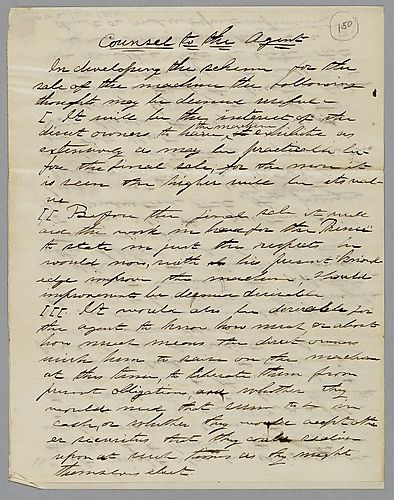 150
Counsel to the Agent
In developing the scheme for the
sale of the machine the following
thought may be deemed useful –
I. It will be the interest of the
direct owners to have the machine exhibited as
extensively as may be practicable be-
fore the final sale, for the more it
is seen the higher will be its val-
ue
II Before the final sale it will
aid the work in hand for the
to state in just the respects he
would now, with his present knowl-
edge improve the machine, should
improvement be deemed desirable
III It would also be desirable for
the agent to know how much or about
how much means the direct owners
wish him to raise on the machine
at this time, to liberate them from
present obligation, and whether they
would need that sum in
cash, or whether they would accept oth-
er securities that they could realize
upon at such times as they might
themselves elect.